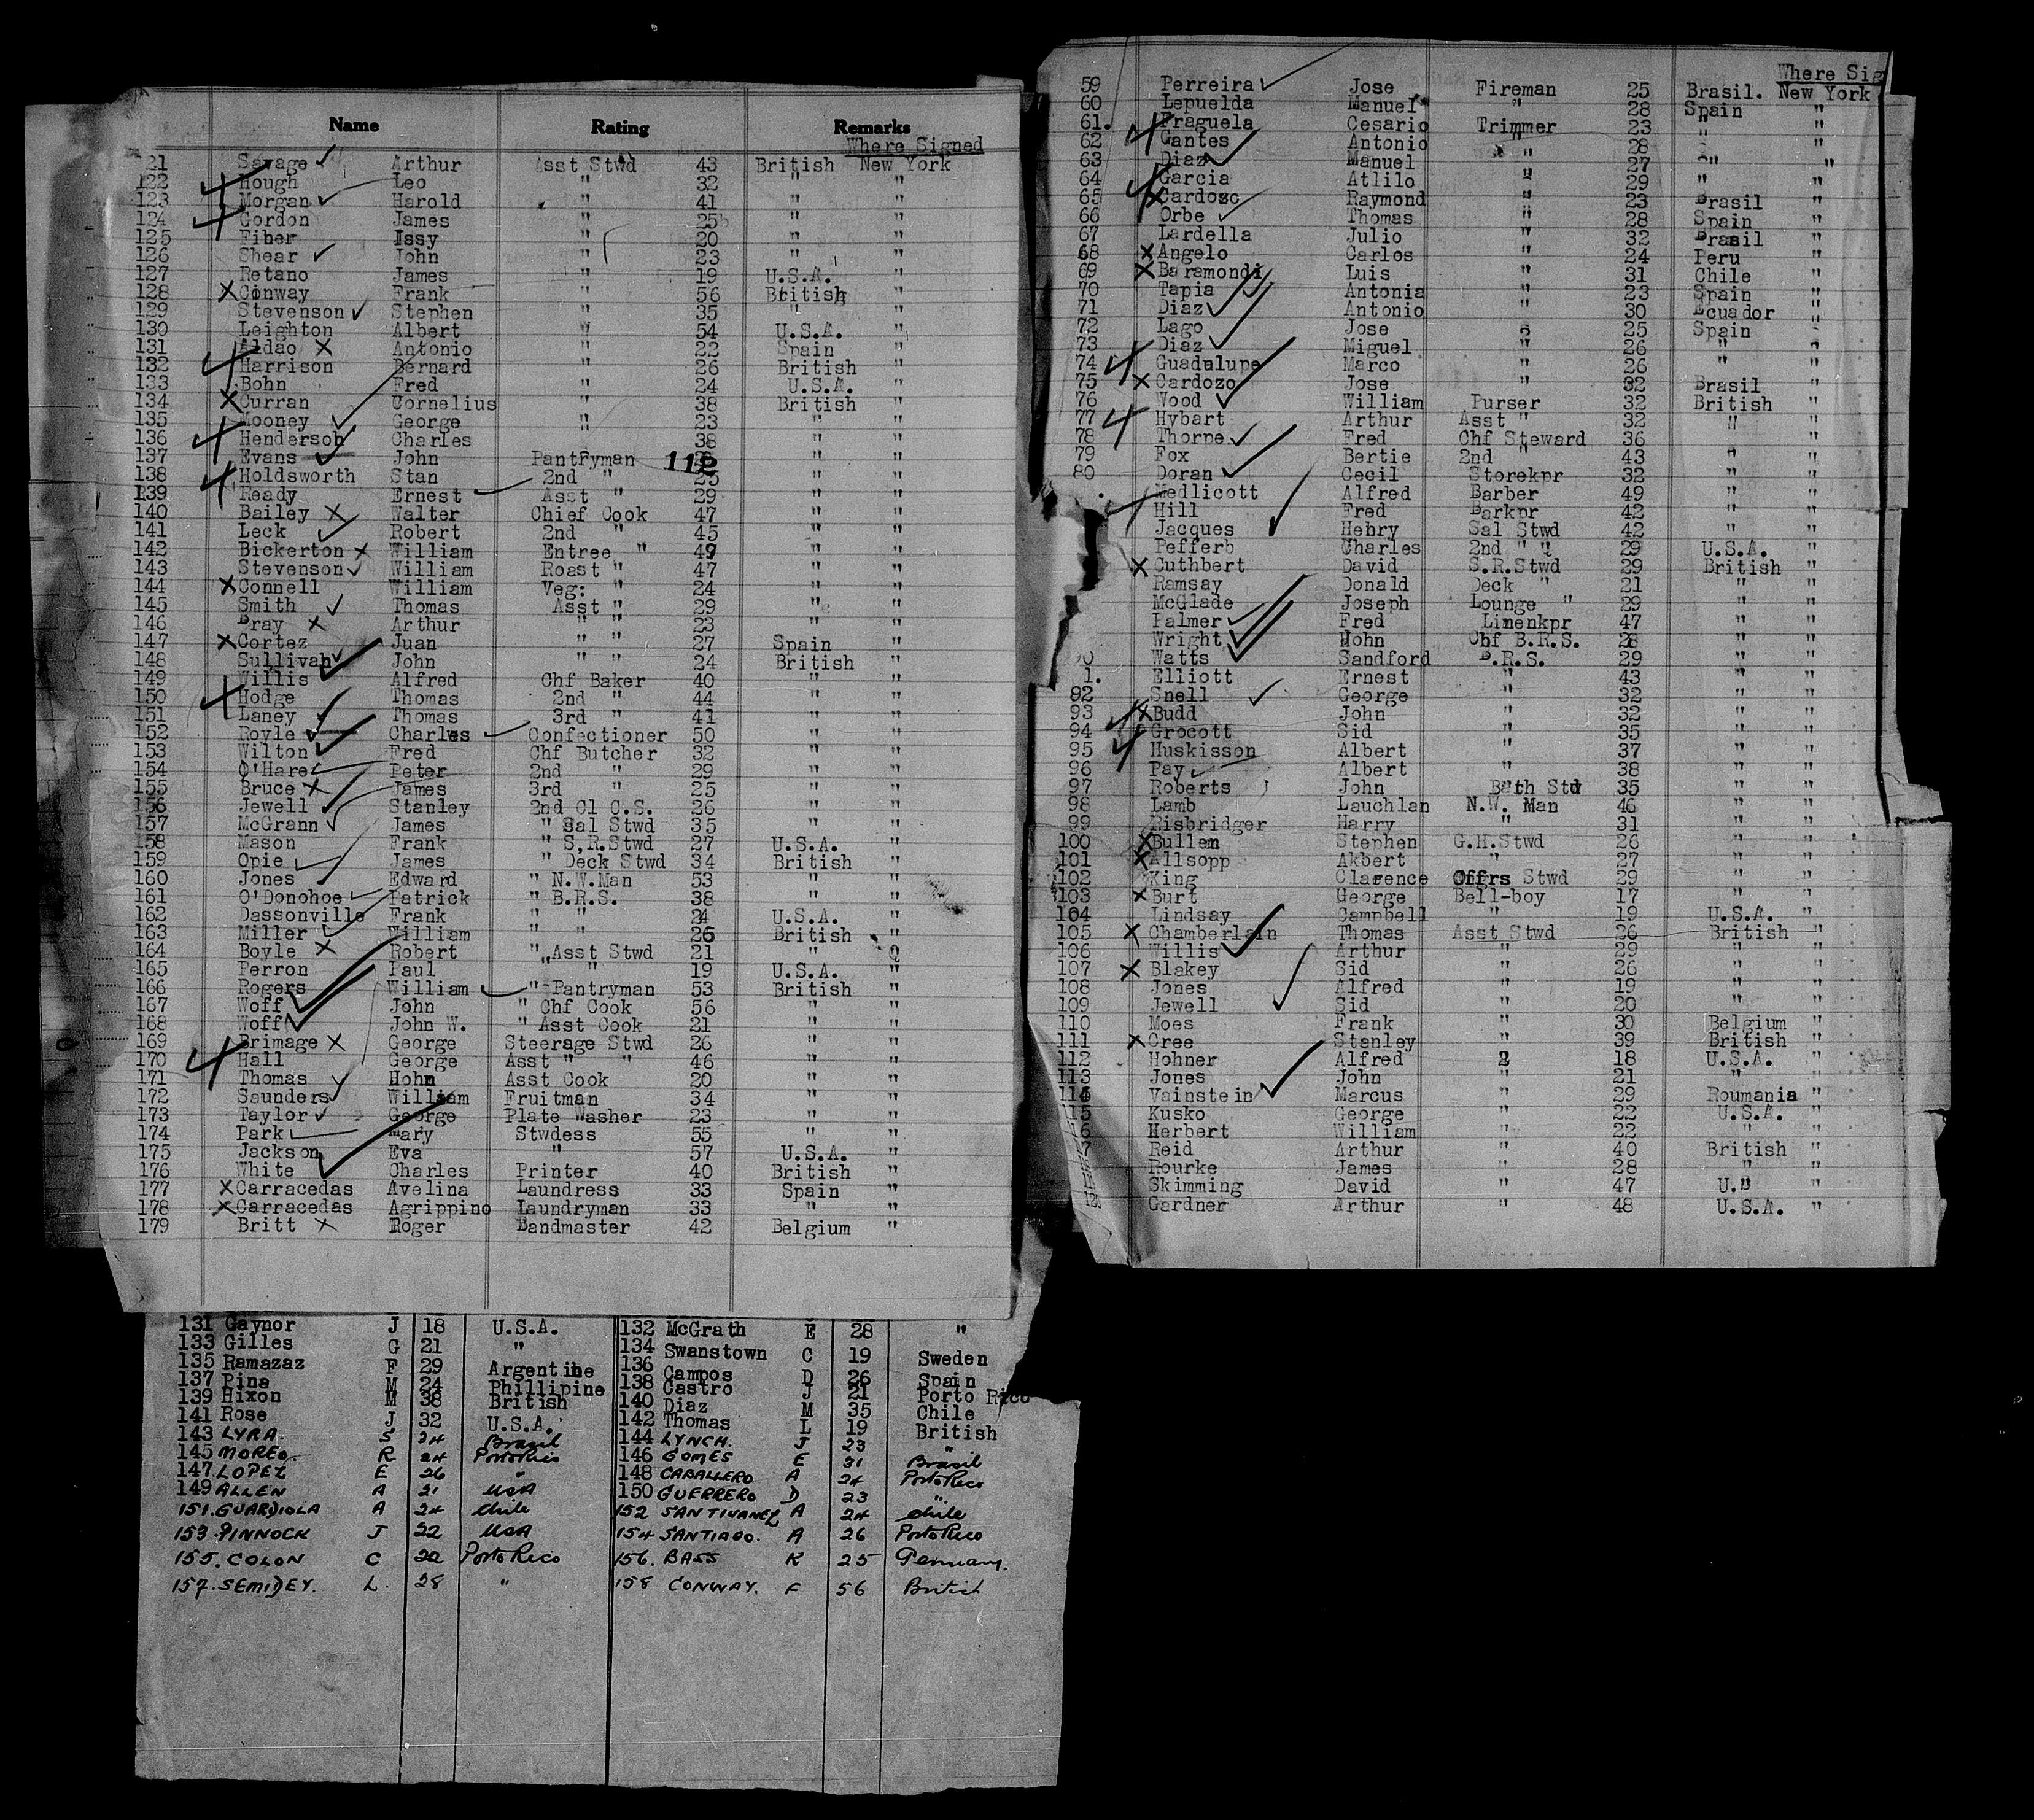 Name Rating Remarks
Where Signed
21 Savage Arthur Asst Stwd 43 British New York
122 Hough Leo " 32 " "
123 Morgan Harold " 41 " "
124 Gordon James " 25 " "
125 Fiber Issy " 20 " "
126 Shear John " 23 " "
127 Retano James " 19 U.S.A. "
128 Conway Frank " 56 British "
129 Stevenson Stephen " 35 " "
130 Leighton Albert " 54 U.S.A. "
131 Aldao Antonio " 22 Spain "
132 Harrison Bernard " 26 British "
133 Bohn Fred " 24 U.S.A. "
134 Curran Cornelius " 38 British "
135 Mooney George " 23 " "
136 Henderson Charles 38 " "
137 Evans John Pantryman 112 " "
138 Holdsworth Stan 2nd " 25 " "
139 Ready Ernest Asst " 29 " "
140 Bailey Walter Chief Cook 47 " "
141 Leck Robert 2nd " 45 " "
142 Bickerton William Entree " 49 " "
143 Stevenson William Roast " 47 " "
144 Connell William Veg: " 24 " "
145 Smith Thomas Asst " 29 " "
146 Bray Arthur " " 23 " "
147 Cortez Juan " " 27 Spain "
148 Sullivan John " " 24 British "
149 Willis Alfred Chf Baker 40 " "
150 Hodge Thomas 2nd " 44 " "
151 Laney Thomas 3rd " 41 " "
152 Royle Charles Confectioner 50 " "
153 Wilton Fred Chf Butcher 32 " "
154 O'Hare Peter 2nd " 29 " "
155 Bruce James 3rd " 25 " "
156 Jewell Stanley 2nd Cl C.S. 26 " "
157 McGrann James " Sal Stwd 35 " "
158 Mason Frank " S,R.Stwd 27 U.S.A. "
159 Opie James " Deck Stwd 34 British "
160 Jones Edward " N.W.Man 53 " "
161 O'Donohoe Patrick " B.R.S. 38 " "
162 Dassonville Frank " " 24 U.S.A. "
163 Miller William " " 26 British "
164 Boyle Robert " Asst Stwd 21 " Q
165 Perron Paul " " 19 U.S.A. "
166 Rogers William " Pantryman 53 British "
167 Woff John " Chf Cook 56 " "
168 Woff John W. " Asst Cook 21 " "
169 Brimage George Steerage Stwd 26 " "
170 Hall George Asst " " 46 " "
171 Thomas Hohn Asst Cook 20 " "
172 Saunders William Fruitman 34 " "
173 Taylor George Plate Washer 23 " "
174 Park Mary Stwdess 55 " "
175 Jackson Eva " 57 U.S.A. "
176 White Charles Printer 40 British "
177 Carracedas Avelina Laundress 33 Spain "
178 Carracedas Agrippino Laundryman 33 " "
179 Britt Roger Bandmaster 42 Belgium "
131 Gaynor J 18 U.S.A. 132 McGrath E 28 "
133 Gilles G 21 " 134 Swanstown C 19 Sweden
135 Ramazaz F 29 Argentine 136 Campos D 26 Spain
137 Pina M 24 Phillipine 138 Castro J 21 Porto Rico
139 Hixon M 38 British 140 Diaz M 35 Chile
141 Rose J 32 U.S.A. 142 Thomas L 19 British
143 LYRA. S 24 Brasil 144 LYNCH. J 23 "
145 MOREO. R 24 Porto Rico 146 GOMES E 31 Brasil
147 LOPEZ E 26 " 148 CABALLERO A 24 Porto Rico
149 ALLEN A 21 USA 150 GUERRERO D 23 "
151. GUARDIOLA A 24 Chile 152 SANTIVANEZ A 24 Chile
153 PINNOCK J 22 USA 154 SANTIAGO. A 26 Porto Rico
155. COLON C 22 Porto Rico 156. BASS K 25 Germany.
157. SEMIDEY. L. 28 " 158 CONWAY. F 56 British
Where Sig
59 Perreira Jose Fireman 25 Brasil. New York
60 Lepuelda Manuel " 28 Spain "
61. Fraguela Cesario Trimmer 23 " "
62 Gantes Antonio " 28 " "
63 Diaz Manuel " 27 " "
64 Garcia Atlilo " 29 " "
65 Cardoso Raymond " 23 Brasil "
66 Orbe Thomas " 28 Spain "
67 Lardella Julio " 32 Brasil "
68 Angelo Carlos " 24 Peru "
69 Baramondi Luis " 31 Chile "
70 Tapia Antonia " 23 Spain "
71 Diaz Antonio " 30 Ecuador "
72 Lago Jose " 25 Spain "
73 Diaz Miguel " 26 " "
74 Guadulupe Marco " 26 " "
75 Cardozo Jose " 32 Brasil "
76 Wood William Purser 32 British "
77 Hybart Arthur Asst " 32 " "
78 Thorne Fred Chf Steward 36 "
79 Fox Bertie 2nd " 43 " "
80 Doran Cecil Storekpr 32 " "
Medlicott Alfred Barber 49 " "
Hill Fred Barkpr 42 " "
Jacques Henry Sal Stwd 42 " "
Pefferb Charles 2nd " " 29 U.S.A. "
Cuthbert David S.R.Stwd 29 British "
Ramsay Donald Deck " 21 " "
McGlade Joseph Lounge " 29 " "
Palmer Fred Linenkpr 47 " "
Wright John Chf B.R.S. 28 " "
Watts Sandford B.R.S. 29 " "
1. Elliott Ernest " 43 " "
92 Snell George " 32 " "
93 Budd John " 32 " "
94 Grocott Sid " 35 " "
95 Huskisson Albert " 37 " "
96 Pay Albert " 38 " "
97 Roberts John Bath Std 35 " "
98 Lamb Lauchlan N.W. Man 46 " "
99 Risbridger Harry " 31 " "
100 Bullen Stephen G.H.Stwd 26 " "
101 Allsopp Akbert " 27 " "
102 King Clarence Offrs Stwd 29 " "
103 Burt George Bell-boy 17 " "
104 Lindsay Campbell " 19 U.S.A. "
105 Chamberlain Thomas Asst Stwd 26 British "
106 Willis Arthur " 29 " "
107 Blakey Sid " 26 " "
108 Jones Alfred " 19 " "
109 Jewell Sid " 20 " "
110 Moes Frank " 30 Belgium "
111 Cree Stanley " 39 British "
112 Hohner Alfred 2 18 U.S.A. "
113 Jones John " 21 " "
114 Vainstein Marcus " 29 Roumania "
115 Kusko George " 22 U.S.A. "
6 Herbert William " 22 " "
7 Reid Arthur " 40 British "
Rourke James " 28 " "
Skimming David " 47 U." "
Gardner Arthur " 48 U.S.A. "